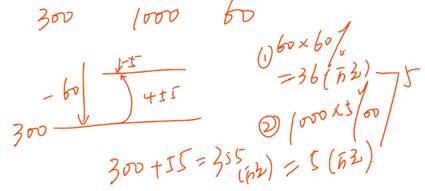 300 1000 60
-60
-5
+55
300
300+55=355(万元)
①60×60%
=36(万元)
②1000×5/00
=5(万元)
5